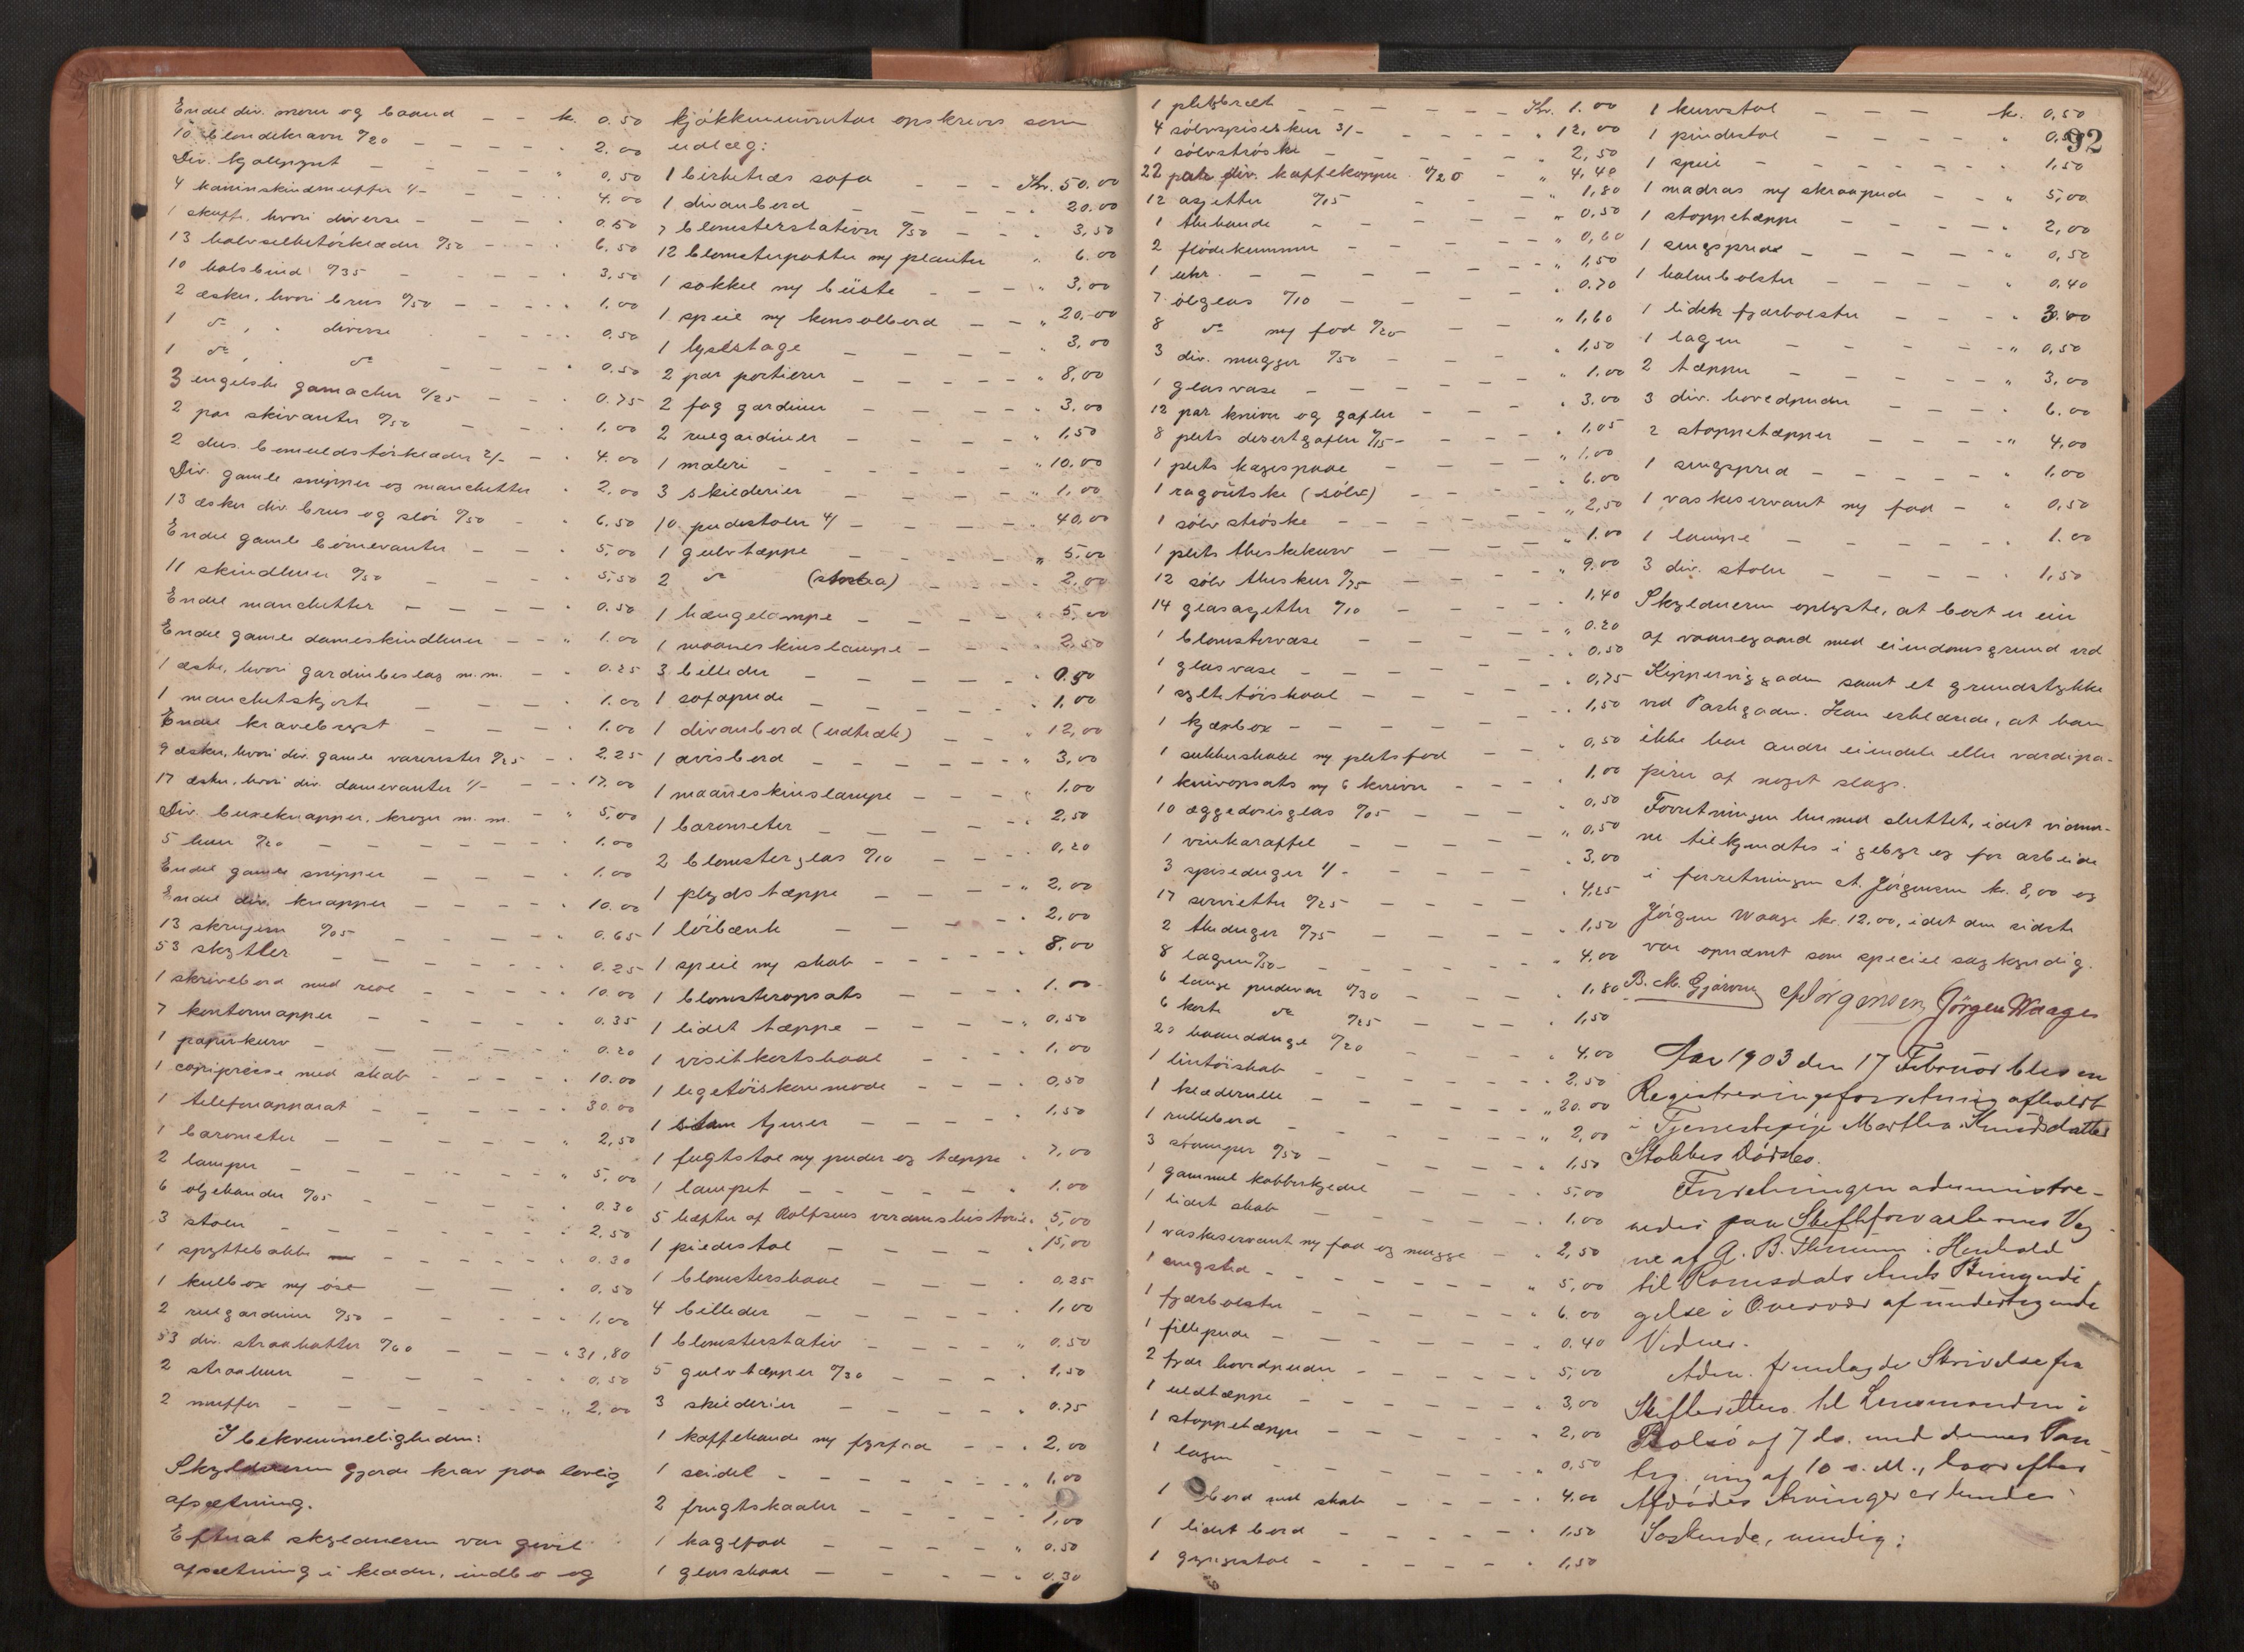 Endel div. snorer og baand - - k. 0.50
10 blondekraver º/20 - - - - 2.00
Div. kjolepynt - - - - " 0.50
4 kaninskindmuffer 1/- - - - 4.00
1 skuffe, hvori diverse - - - - 0.50
13 halvsilketörklæder º/50 - - - 6.50
10 halsbind º/35 - - - - 3.50
2 æsker, hvori brus º/50 - - - - 1.00
1 do , " diverse - - - 0.50
1 do , " do - - - 0.50
3 engelske gamacher º/25 - - - 0.75
2 par skivanter º/50 - - - 1.00
2 dus. bomuldstörklæder 2/- - - 4.00
Div. gamle snipper og manchetter " 2.00
13 æsker div. brus og slör º/50 - " 6.50
Endel gamle börnevanter - - " 5,00
11 skindluer º/50 - - - - 5,50
Endel manchetter - - - - 0.50
Endel gamle dameskindluer - - " 1.00
1 æske, hvori gardinbeslag m.m. - " 0.25
1 manchetskjorte - - - - 1.00
Endel kravebryst - - - 1.00
9 æsker, hvori div. gamle varerester º/25 - " 2.25
17 æsker, hvori div. damevanter 1/- - - " 17.00
Div. buxeknapper, kroger m.m. - " 5,00
5 huer º/20 - - - - - 1.00
Endel gamle snipper - - - - 1.00
Endel div. knapper - - - - 10.00
13 skruejern º/05 - - - - " 0.65
53 skytler - - - - - 0.25
1 skrivebord med reol - - - - 10.00
7 kontormapper - - - - " 0.35
1 papirkurv - - - - - 0.20
1 copipresse med skab - - - - 10.00
1 telefonapparat - - - - - 30.00
1 barometer - - - - - " 2,50
2 lamper - - - - - " 5,00
6 oljekander º/05 - - - - " 0.30
3 stoler - - - - - 2.50
1 spyttebakke - - - - - " 0.30
1 kulbox m/ öse - - - " 0.50
2 rulgardiner º/50 - - - - " 1,00
53 div. straahatter º/60 - - - " 31,80
2 straaluer - - - - " 0,50
2 muffer - - - - - " 2.00
I bekvemmeligheden:
Skyldneren gjorde krav paa lovlig
afsætning.
Efterat skyldneren var givet
afsætning i klæder, indbo og
kjökkeninventar opskreves som
udlæg:
1 birketræs sofa - - - Kr. 50.00
1 divanbord - - - - " 20.00
7 blomsterstativer º/50 - - " 3,50
12 blomsterpotter m/ planter " 6.00
1 sokkel m/ büste - - - " 3,00
1 speil m/ konsolbord - - " 20.00
1 lysestage - - - - " 3,00
2 par portierer - - - - - " 8,00
2 fag gardiner - - - - " 3.00
2 rulgardiner - - - - " 1,50
1 maleri - - - - - " 10.00
3 skilderier - - - - " 1,00
10 pudestoler 4/ - - - - 40,00
1 gulvtæppe - - - - " 5.00
2 do - - - " 2,00
1 hængelampe - - - - " 5,00
1 maaneskinslampe - - - " 2,50
3 billeder - - - - - " 0.90
1 sofapude - - - - - " 1,00
1 divanbord (udtræk) - - " 12,00
1 avisbord - - - - - - " 3,00
1 maaneskinslampe - - - " 1.00
1 barometer - - - - - " 2,50
2 blomsterglas º/10 - - - " 0,20
1 plydstæppe - - - - " 2,00
1 löibænk - - - - " 2,00
1 speil m/ skab - - - - - 8.00
1 blomsteropsats - - - - 1.00
1 lidet tæppe - - - - " 0,50
1 visitkortskaal - - - - 1.00
1 legetöiskommode - - - - 0,50
1 stum tjener - - - - 1,50
1 frugtstol m/ puder og tæppe " 7,00
1 lampet - - - - - " 1.00
5 hæfter af Rolfsens verdenshistorie " 5,00
1 piedestal - - - - - " 15,00
1 blomsterskaal - - - - " 0.25
4 billeder - - - - " 1,00
1 blomsterstativ - - - - " 0,50
5 gulvtæpper º/30 - - - - 1,50
3 skilderier - - - - " 0.75
1 kaffekande m/ fyrfad - - " 2,00
1 seidel - - - - - - " 1,00
2 frugtskaaler - - - - - 1,00
1 kagefad - - - - - " 0.50
1 glasskaal - - - - " 0,30
1 pletbræt - - - - - - Kr. 1.00
4 sölvspiseskeer 3/- - - - - " 12,00
1 sölvströske - - - - - " 2,50
22 par div. kaffekopper º/20 - " 4,40
12 asjetter º/15 - - - " 1,80
1 thekande - - - - " 0,50
2 flödekummer - - - - " 0,60
1 uhr. - - - - - - " 1,50
7 ölglas º/10 - - - - " 0.70
8 do m/ fod º/20 - - " 1,60
3 div. mugger º/50 - - - " 1,50
1 glasvase - - - - - " 1.00
12 par kniver og gafler - - - " 3.00
8 plets desertgafler º/15 - - - " 1,05
1 plets kagespade - - - - " 1,00
1 ragoütske (sölv) - - - " 6.00
1 sölvströske - - - - - " 2,50
1 plets theskekurv - - - - " 1.00
12 sölv theskeer º/75 - - - - " 9.00
14 glasasjetter º/10 - - - - " 1,40
1 blomstervase - - - - " 0.20
1 glasvase - - - - - " 0,50
1 syltetöiskaal - - - - " 0,75
1 kjærbox - - - - - " 1,50
1 sukkerskaal m/ pletsfod - - " 0,50
1 knivopsats m/ 6 kniver - - " 1.00
10 æggedosisglas º/05 - - - " 0,50
1 vinkaraffel - - - - - " 0,50
3 spiseduger 1/- - - - - " 3,00
17 servietter º/25 - - - - " 4,25
2 theduger º/75 - - - - " 1,50
8 lagen º/50 - - - - - " 4.00
6 lange pudevar º/30 - - - " 1,80
6 korte do º/25 - - - " 1,50
20 haandduge º/20 - - - " 4.00
1 lintöiskab - - - - - " 2,50
1 klæderulle - - - - - " 20.00
1 rullebord - - - - - " 2,00
3 stamper º/50 - - - - - " 1,50
1 gammel kobberkjedel - - - " 5,00
1 lidet skab - - - - - " 1,00
1 vaskeservant m/ fad og mugge - " 2,50
1 sengsted - - - - - - " 5,00
1 fjærbolster - - - - - " 6.00
1 fillepude - - - - - " 0.40
2 fjær hovedpuder - - - - " 5,00
1 uldtæppe - - - - - " 3,00
1 stoppetæppe - - - - " 2,00
1 lagen - - - - - " 0,50
1 bord med skab - - - - " 4.00
1 lidet bord - - - - - " 1,50
1 gyngestol - - - - - " 1,50
1 kurvstol - - - - k. 0,50
92
1 pindestol - - - - - " 0,50
1 speil - - - - - - 1,50
1 madras m/ skraapude - - " 5,00
1 stoppetæppe - - - - " 2,00
1 sengspred - - - - - " 0,50
1 halmbolster - - - - " 0,40
1 lidet fjærbolster - - - " 3.00
1 lagen - - - - - " 0,50
2 tæpper - - - - - " 3,00
3 div. hovedpuder - - - - " 6.00
2 stoppetæpper - - - - " 4,00
1 sengspred - - - - " 1,00
1 vaskeservant m/ fad - " 0,50
1 lampe - - - - - 1.00
3 div. stoler - - - - " 1,50
Skyldneren oplyste, at boet er eier
af vaanegaard med eiendomsgrund ved
samt et grundstykke
ved Parkgaden. Han erklærede, at han
ikke har andre eiendele eller værdipa-
pirer af noget slags.
Forretningen hermed sluttet, idet vidner-
ne tilkjendtes i gebyr og for arbeide
i forretningen A. Jörgensen kr. 8,00 og
Jörgen Waage kr. 12.00, idet den sidste
var opnævnt som speciel sagkyndig.
B. M. Gjærvig A Jörgensen Jörgen Waage
Aar 1903 den 17 Februar blev en
Registreringsforretning afholdt
i Tjenestepige Martha Knudsdatter
Stokkes Dödsbo.
Forretningen administre-
redes paa Skifteforvalterens Veg-
ne af A. B. i Henhold
til Romsdals Amts Bemyndi-
gelse i Overvær af undertegnede
Vidner.
Adm. fremlagde Skrivelse fra
Skifteretten til Lensmanden i
Bolsö af 7 ds. med dennes
af 10 s. M., hvorefter
Afdödes Arvinger er hendes
Söskende, myndig: